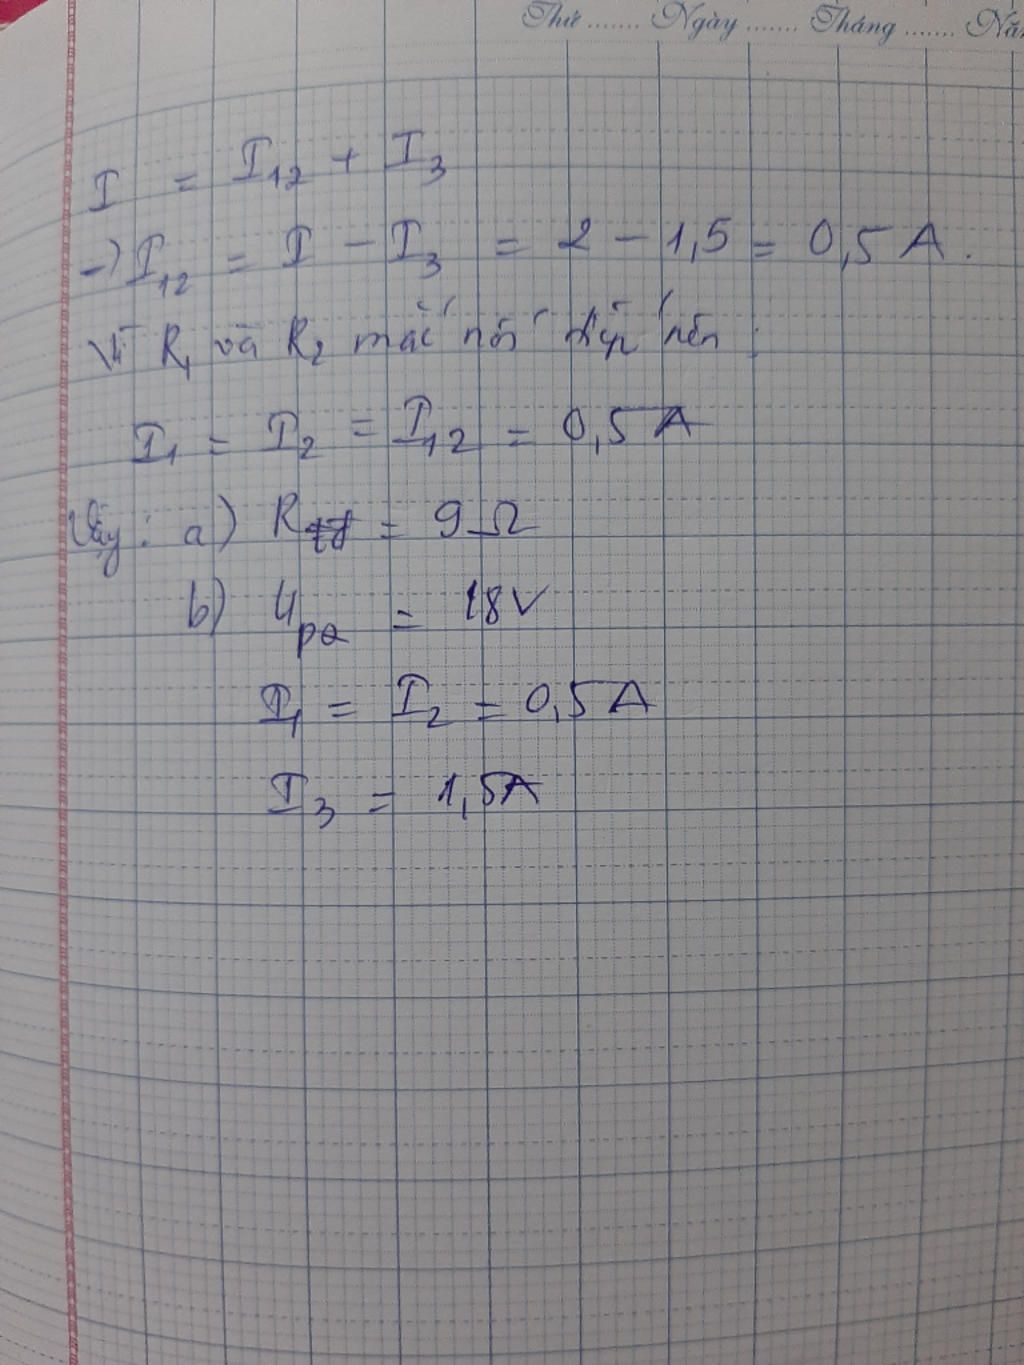 Thứ ....... Ngày ....... Tháng ....... Nă
I = I12 + I3
→ I12 = I - I3 = 2 - 1,5 = 0,5 A.
Vì R1 và R2 mắc nối tiếp nên :
I1 = I2 = I12 = 0,5 A
Vậy : a) Rtđ = 9 Ω
b) UPQ = 18 V
I1 = I2 = 0,5 A
I3 = 1,5A